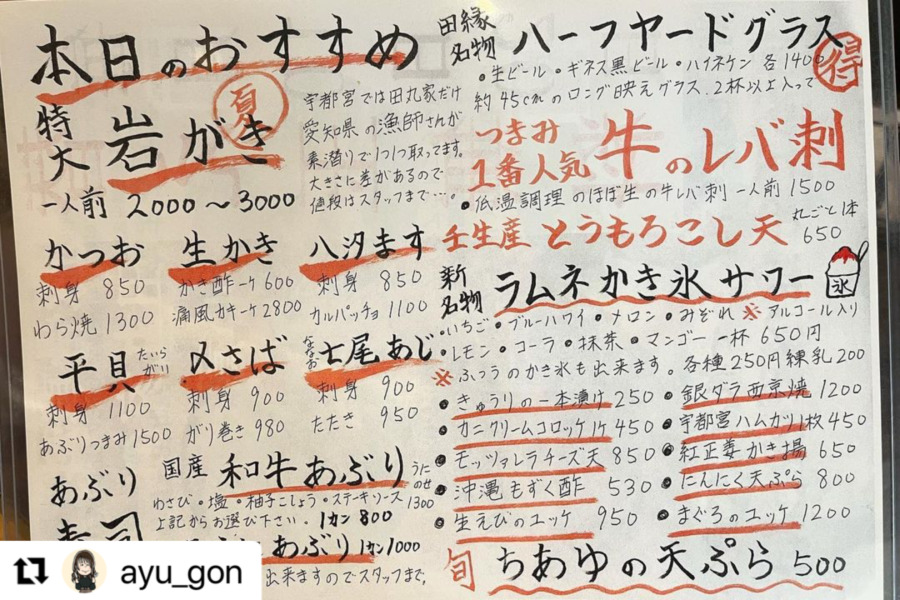 本日のおすすめ
特大 岩がき 夏
一人前 2000〜3000
宇都宮では田丸家だけ
愛知県の漁師さんが
素潜りで1つ1つ取ってます。
大きさに差があるので
値段はスタッフまで…。
かつお
刺身 850
わら焼 1300
生かき
かき酢一ケ 600
痛風カキ一ケ 2800
八汐ます
刺身 850
カルパッチョ 1100
平貝 たいらがり
刺身 1100
あぶりつまみ 1500
〆さば
刺身 900
がり巻き 980
七尾あじ ななお
刺身 900
たたき 950
あぶり
寿司
国産 和牛あぶり うにのせ 1300
わさび・塩・柚子こしょう・ステーキソース
上記からお選び下さい。1カン 800
あぶり 1カン1000
出来ますのでスタッフまで。
田縁名物 ハーフヤードグラス
・生ビール・ギネス黒ビール・ハイネケン 各1400
得
約45cmのロング映えグラス。2杯以上入って
つまみ
1番人気 牛のレバ刺
・低温調理のほぼ生の牛レバ刺 一人前 1500
壬生産 とうもろこし天 丸ごと1本 650
新名物 ラムネかき氷サワー
氷
・いちご・ブルーハワイ・メロン・みぞれ ※アルコール入り
・レモン・コーラ・抹茶・マンゴー 一杯 650円
※ふつうのかき氷も出来ます。各種250円練乳200
・きゅうりの一本漬け 250
・カニクリームコロッケ1ケ 450
・モッツァレラチーズ天 850
・沖縄もずく酢 530
・生えびのユッケ 950
・銀ダラ西京焼 1200
・宇都宮ハムカツ1枚 450
・紅正姜かき揚 650
・にんにく天ぷら 800
・まぐろのユッケ 1200
旬 ちあゆの天ぷら 500
ayu_gon